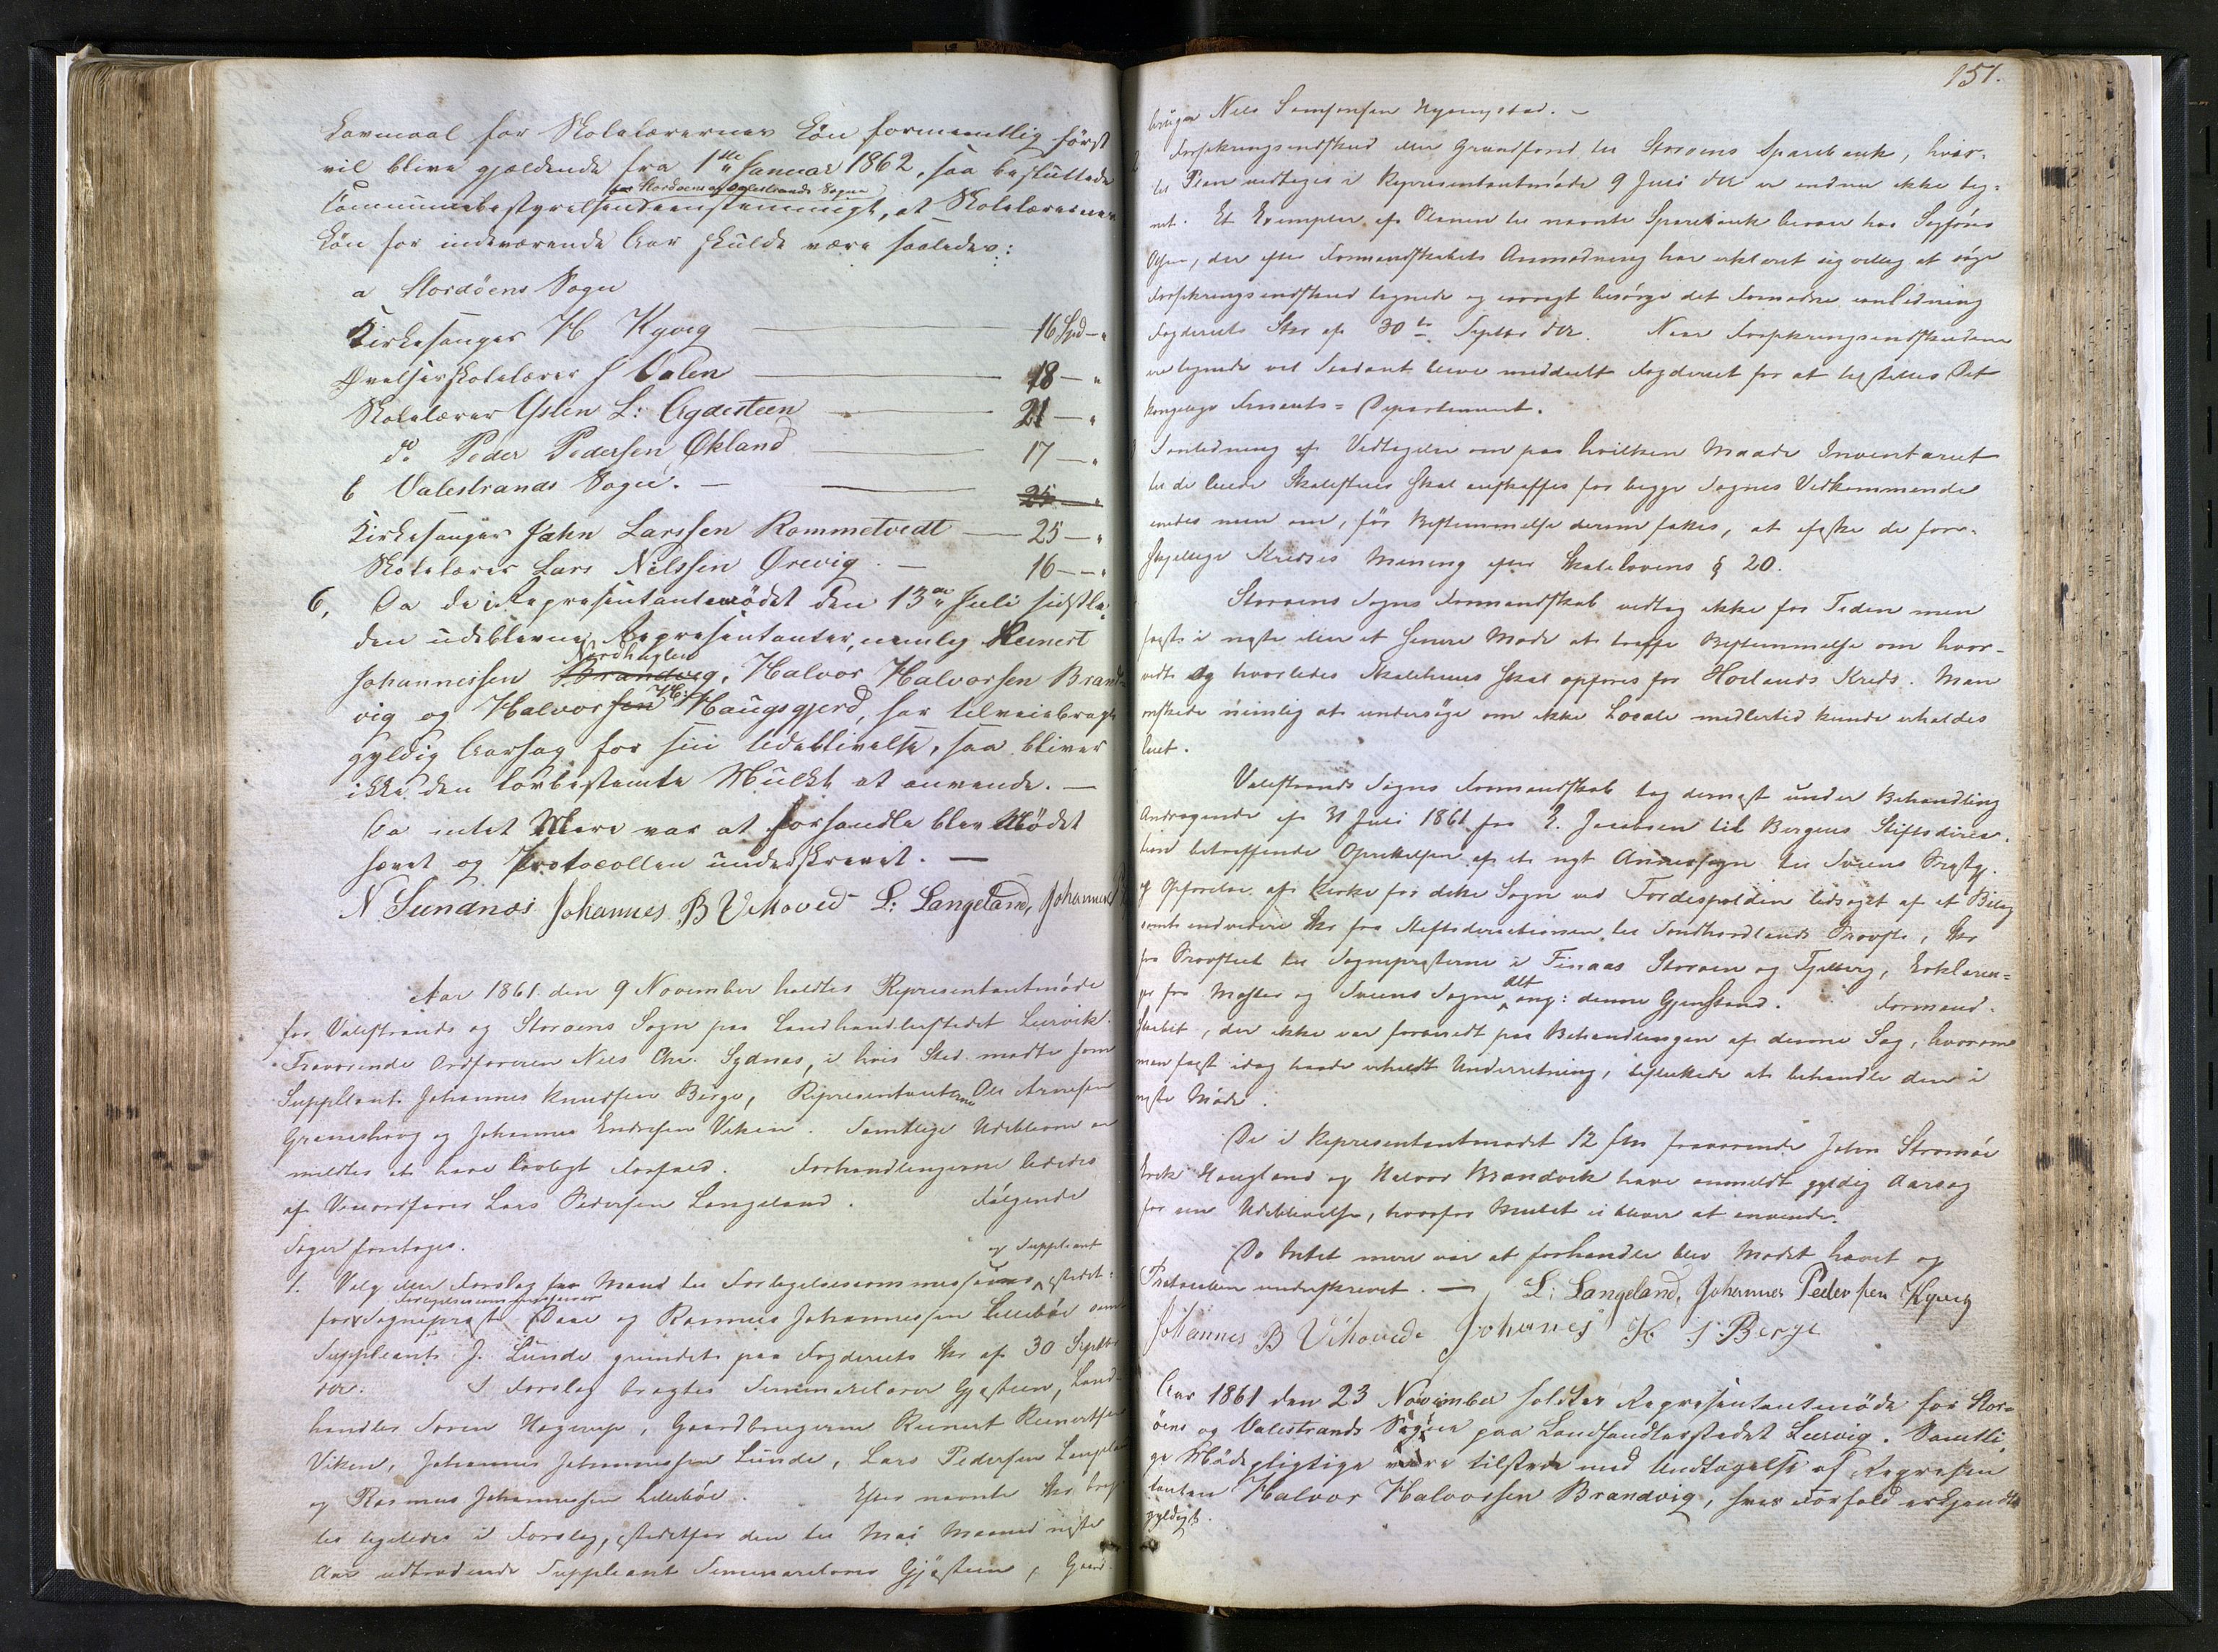 Løvmaal for Skolelærernes Løn formeentlig først
vil blive gjældende fra 1ste Januar 1862, saa besluttede
for Stordøens og Valestrands Sogne
Communebestyrelsen eenstemmigt, at Skolelærernes
Løn for indeværende Aar skulde være saaledes:
a Stordöens Sogn
Kirkesanger H Kyvig 16 Spd "
Øvelsesskolelærer S Valen 18 — "
Skolelærer Østen L: Agdesteen 21 — "
do Peder Pedersen Økland 17 — "
b Valestrands Sogn. — 25 "
Kirkesanger John Larssen Rommetvedt 25 — "
Skolelærer Lars Nilssen Ørevig — 16 — "
6, Da de i Repræsentantmödet den 13de Juli sidstle-
den udeblevne Repræsentanter, nemlig Reinert
Nordhuglen
Johannessen Brandvig, Halvor Halvorsen Brand-
vig og Halvorsen H: Haugsgjerd, har tilveiebragt
gyldig Aarsag for sin Udeblivelse, saa bliver
ikke den lovbestemte Mulkt at anvende. —
Da intet Mere var at forhandle blev Mödet
hævet og Protocollen underskrevet. —
N Sundnæs Johannes B Vihoved L: Langeland, Johannes
Aar 1861 den 9 November holdtes Repræsentantmöde
for Valestrands og Storöens Sogn paa Landhandlerstedet Leervik.
Fraværende Ordföreren Niels Chr. Sydnæs, i hvis Sted mødte som
Suppleant Johannes Knudsen Berge, Repræsentanterne Ole Arnesen
Grøneshoug og Johannes Endresen Viken. Samtlige Udeblevne er
meldte at have lovligt Forfald. Forhandlingerne lededes
af Viceordfører Lars Pedersen Langeland. Følgende
Sager foretoges.
og Suppleant
1. Valg eller Forslag paa Mænd til Forligelsescommissairer istedet-
Forligelsescommissairer
for Sognepræst Daae og Rasmus Johannessen Lillebøe samt
Suppleant J. Lunde grundet paa Fogderiets Skr af 30 Septbr
d.A. I Forslag bragtes Seminarielærer Gjøsteen, Land-
handler Søren Hagerup, Gaardbrugerne Reinert Reinertsen
Viken, Johannes Johannessen Lunde, Lars Pedersen Langeland
og Rasmus Johannessen Lillebøe. Efter nævnte Skr brag-
tes ligeledes i Forslag, istedetfor den til Mai Maaned næste
Aar udtrædende Suppleant Seminarielærer Gjøsteen, Gaard-
151.
bruger Nils Samsonsen Hyenystad. —
Forsikringsindskud eller Grundfond til Storöens Sparebank, hvor-
til Plan vedtoges i Repræsentantmöde 9 Juli d.A. er endnu ikke teg-
net. Et Exemplar af Planen til nævnte Sparebank beroer hos Sagförer
Olsen, der efter Formandskabets Anmodning har erklæret sig villig at söge
Forsikringsindskud tegnede og iøvrigt besörge det Fornødne i Anledning
Fogderiets Skr af 30te Septbr d.A. Naar Forsikringsindskudene
ere tegnede vil Saadant blive meddeelt Fogderiet for at tilstilles Det
kongelige Finants-Departement.
I Anledning af Vedtagelse om paa hvilken Maade Inventariet
til de leiede Skolestuer skal anskaffes for begge Sognes Vedkommende
enedes man om, för Bestemmelse derom fattes, at æske de for-
skjellige Kredses Mening efter Skolelovens § 20.
Storøens Sogns Formandskab vedtog ikke for Tiden men
først i næste eller et senere Møde at træffe Bestemmelse om hvor-
vidt og hvorledes Skolehuus skal opføres for Hovlands Kreds. Man
ønskede nemlig at undersöge om ikke Locale midlertid kunde erholdes
leiet.
Valestrands Sogns Formandskab tog dernæst under Behandling
Andragende af 31 Juli 1861 fra E. Jacobsen til Bergens Stiftsdirec-
tion betræffende Oprettelsen af et nyt Annexsogn til Sveens Præstgj.
og Opførelse af Kirke for dette Sogn ved Fordespolden ledsaget af et Bilag
samt endvidere Skr fra Stiftsdirectionen til Søndhordlands Provsti, Skr
fra Provstiet til Sognepræsterne i Finaas Storøen og Fjelberg, Erklærin-
alt
ger fra Moster og Sveens Sogne, ang: denne Gjenstand. Formand-
skabet, der ikke var forberedt paa Behandlingen af denne Sag, hvorom
man først idag havde erholdt Underretning, besluttede at behandle den i
næste Møde.
De i Repræsentantmødet 12 f.M. fraværende John Stromöe
Erik Hougland og Halvor Brandvik have anmeldt gyldig Aarsag
for sin Udeblivelse, hvorfor Mulct ei bliver at anvende.
Da Intet mere var at forhandle blev Mødet hævet og
Protocollen underskrevet. — L: Langeland, Johannes Pedersen Kyvig
Johannes B Vihovede Johanes K S Berge
Aar 1861 den 23 November holdtes Repræsentantmöde for Stor-
öens og Valestrands Sogne paa Landhandlerstedet Leervig. Samtli-
ge Mödepligtige vare tilstede med Undtagelse af Repræsen-
tanten Halvor Halvorsen Brandvig, hvis Forfald erkjendtes
gyldigt.